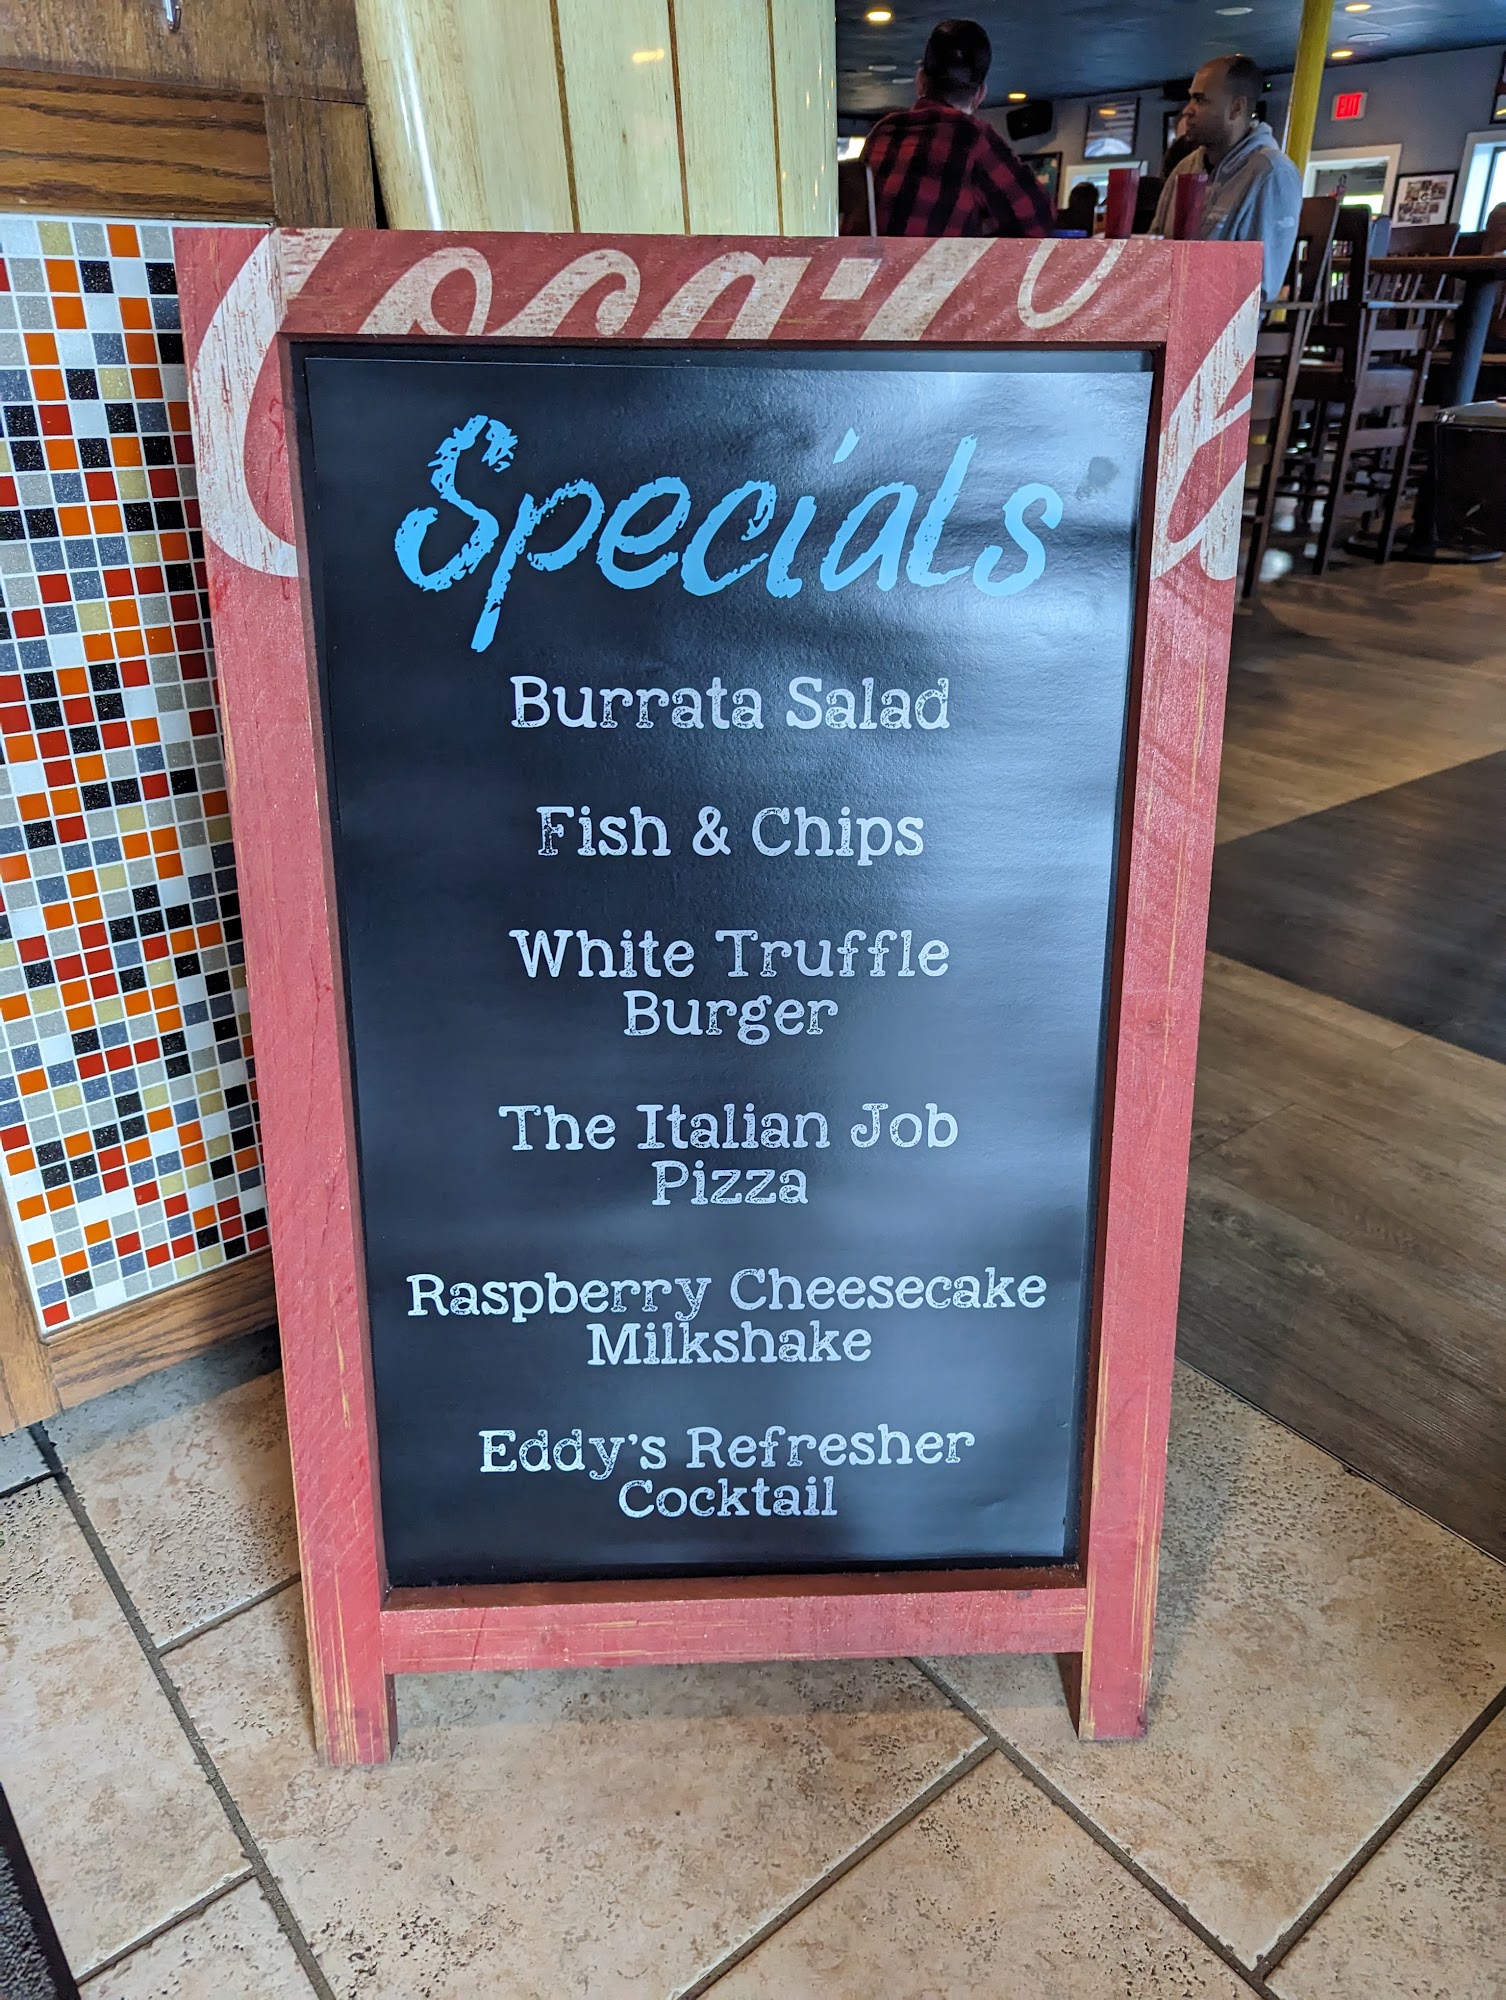 Coca-Cola
Specials
Burrata Salad
Fish & Chips
White Truffle
Burger
The Italian Job
Pizza
Raspberry Cheesecake
Milkshake
Eddy's Refresher
Cocktail
EXIT